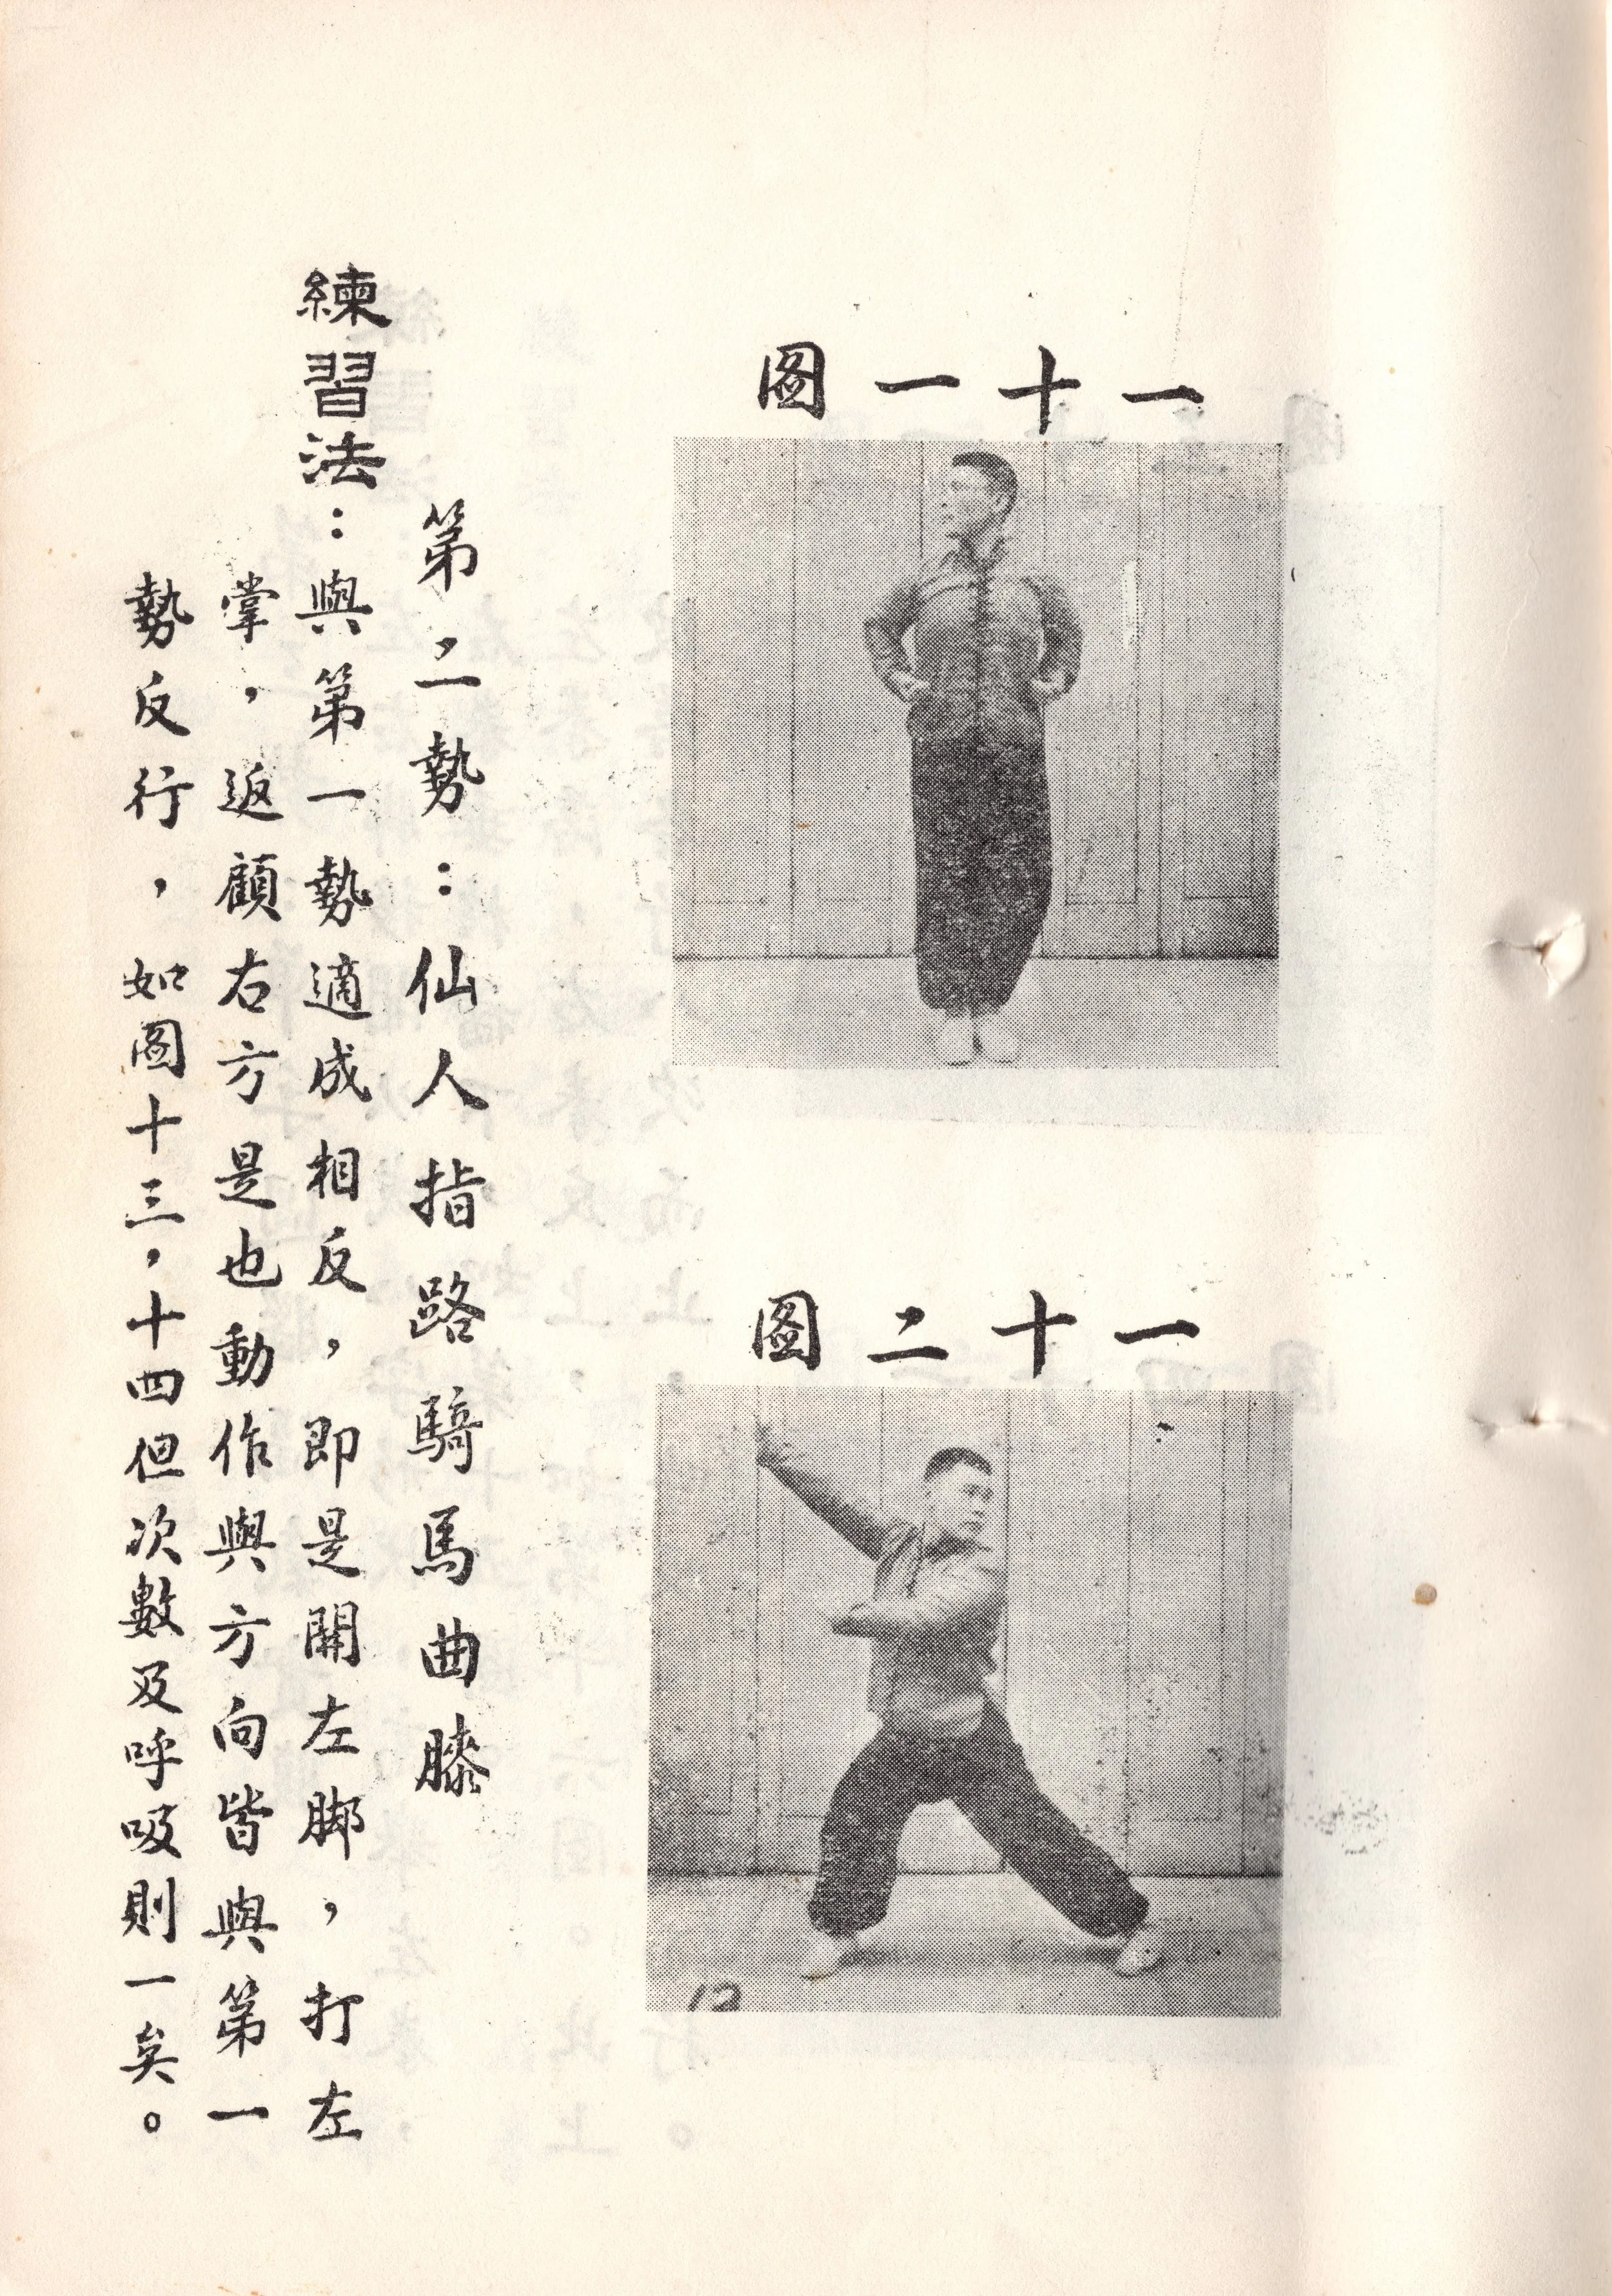 一十一圖
一十二圖
第二勢：仙人指路騎馬曲膝
練習法：與第一勢適成相反，即是開左脚，打左
掌，返顧右方是也動作與方向皆與第一
勢反行，如圖十三，十四但次數及呼吸則一矣。
12